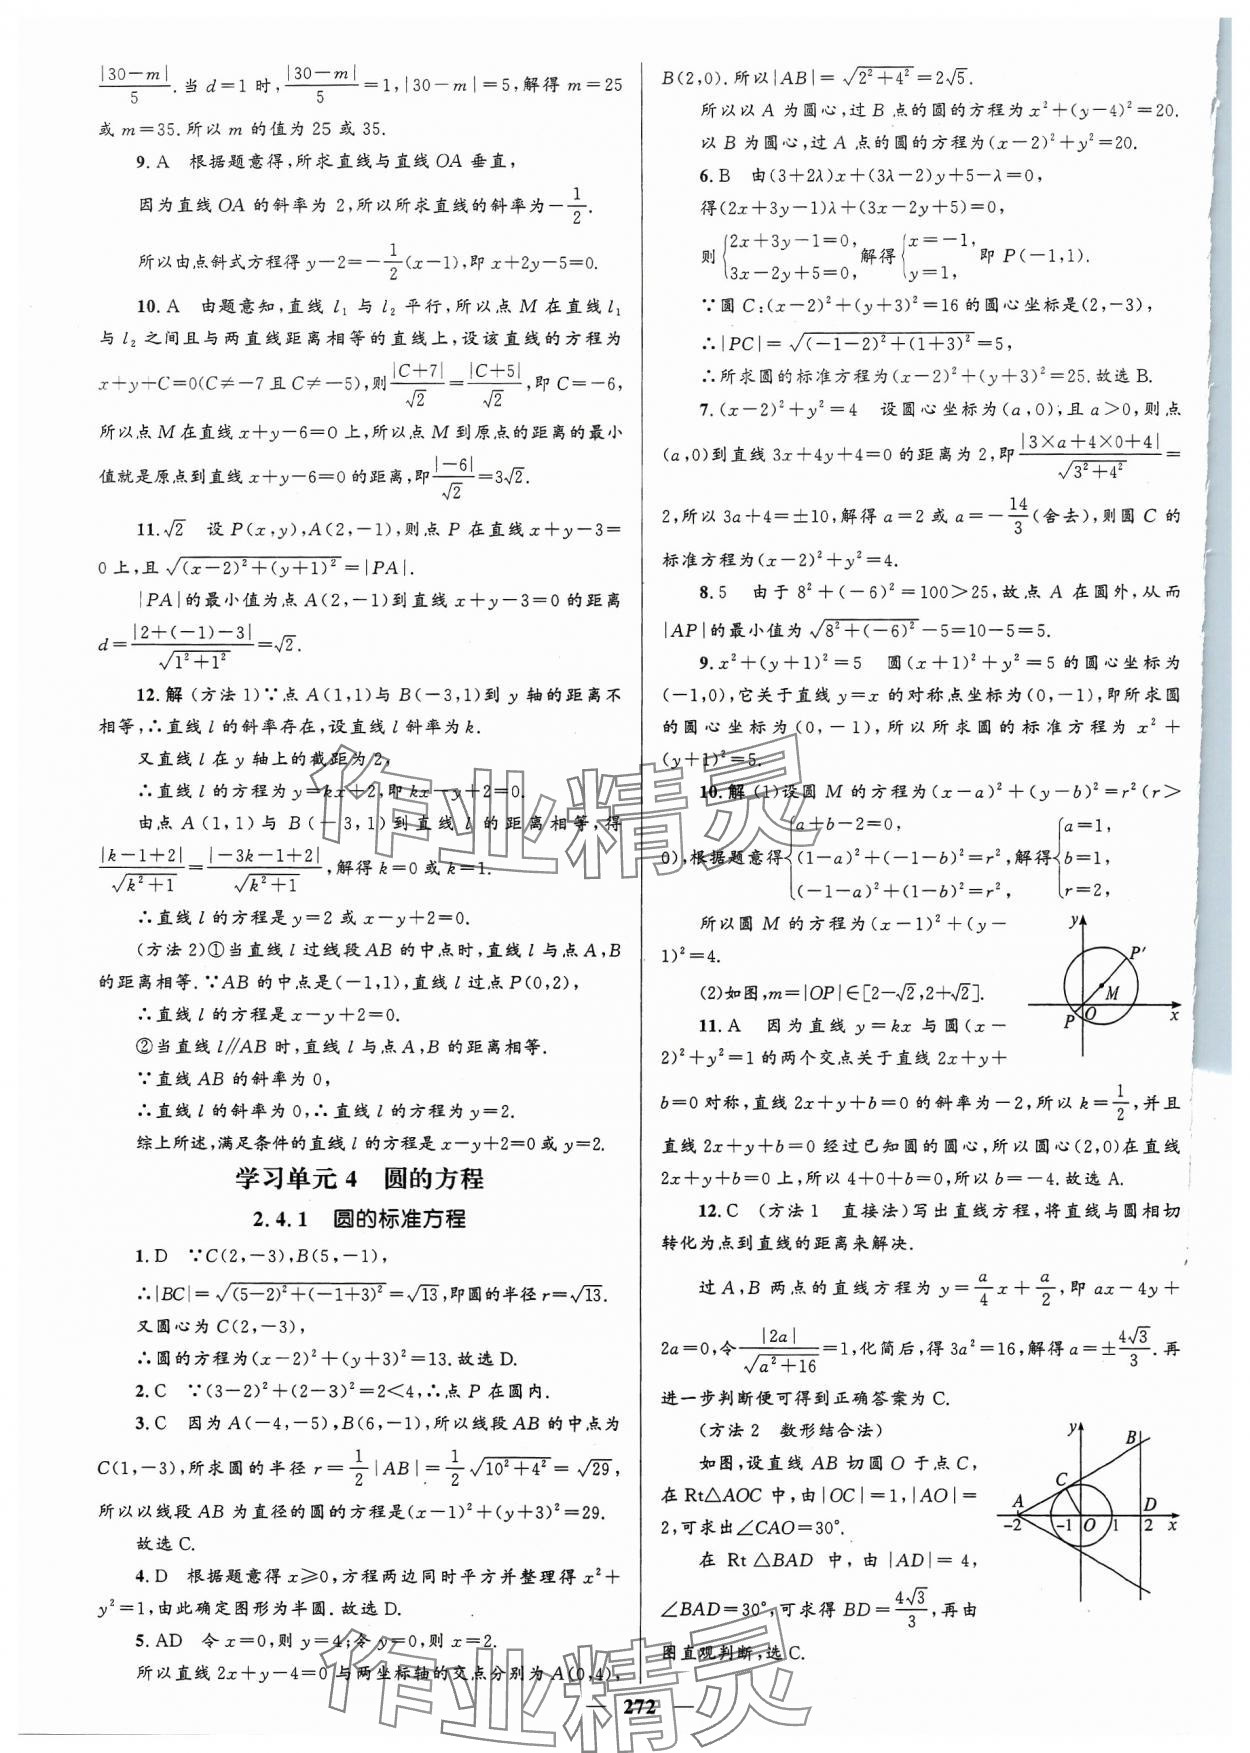 |30－m|/5.当 d＝1 时,|30－m|/5＝1,|30－m|＝5,解得 m＝25
或 m＝35.所以 m 的值为 25 或 35.
9. A　根据题意得,所求直线与直线 OA 垂直,
因为直线 OA 的斜率为 2,所以所求直线的斜率为－1/2.
所以由点斜式方程得 y－2＝－1/2(x－1),即 x＋2y－5＝0.
10. A　由题意知,直线 l₁ 与 l₂ 平行,所以点 M 在直线 l₁
与 l₂ 之间且与两直线距离相等的直线上,设该直线的方程为
x＋y＋C＝0(C≠－7 且 C≠－5),则|C＋7|/√2＝|C＋5|/√2,即 C＝－6,
所以点 M 在直线 x＋y－6＝0 上,所以点 M 到原点的距离的最小
值就是原点到直线 x＋y－6＝0 的距离,即|－6|/√2＝3√2.
11. √2　设 P(x,y),A(2,－1),则点 P 在直线 x＋y－3＝
0 上,且 √((x－2)²＋(y＋1)²)＝|PA|.
|PA|的最小值为点 A(2,－1)到直线 x＋y－3＝0 的距离
d＝|2＋(－1)－3|/√(1²＋1²)＝√2.
12. 解 (方法 1)∵点 A(1,1)与 B(－3,1)到 y 轴的距离不
相等,∴直线 l 的斜率存在,设直线 l 斜率为 k.
又直线 l 在 y 轴上的截距为 2,
∴直线 l 的方程为 y＝kx＋2,即 kx－y＋2＝0.
由点 A(1,1)与 B(－3,1)到直线 l 的距离相等,得
|k－1＋2|/√(k²＋1)＝|－3k－1＋2|/√(k²＋1),解得 k＝0 或 k＝1.
∴直线 l 的方程是 y＝2 或 x－y＋2＝0.
(方法 2)①当直线 l 过线段 AB 的中点时,直线 l 与点 A,B
的距离相等.∵AB 的中点是(－1,1),直线 l 过点 P(0,2),
∴直线 l 的方程是 x－y＋2＝0.
②当直线 l∥AB 时,直线 l 与点 A,B 的距离相等.
∵直线 AB 的斜率为 0,
∴直线 l 的斜率为 0,∴直线 l 的方程为 y＝2.
综上所述,满足条件的直线 l 的方程是 x－y＋2＝0 或 y＝2.
学习单元 4　圆的方程
2.4.1　圆的标准方程
1. D　∵C(2,－3),B(5,－1),
∴|BC|＝√((5－2)²＋(－1＋3)²)＝√13,即圆的半径 r＝√13.
又圆心为 C(2,－3),
∴圆的方程为(x－2)²＋(y＋3)²＝13.故选 D.
2. C　∵(3－2)²＋(2－3)²＝2＜4,∴点 P 在圆内.
3. C　因为 A(－4,－5),B(6,－1),所以线段 AB 的中点为
C(1,－3),所求圆的半径 r＝1/2|AB|＝1/2√(10²＋4²)＝√29,
所以以线段 AB 为直径的圆的方程是(x－1)²＋(y＋3)²＝29.
故选 C.
4. D　根据题意得 x≥0,方程两边同时平方并整理得 x²＋
y²＝1,由此确定图形为半圆.故选 D.
5. AD　令 x＝0,则 y＝4;令 y＝0,则 x＝2.
所以直线 2x＋y－4＝0 与两坐标轴的交点分别为 A(0,4),
B(2,0).所以|AB|＝√(2²＋4²)＝2√5.
所以以 A 为圆心,过 B 点的圆的方程为 x²＋(y－4)²＝20.
以 B 为圆心,过 A 点的圆的方程为(x－2)²＋y²＝20.
6. B　由(3＋2λ)x＋(3λ－2)y＋5－λ＝0,
得(2x＋3y－1)λ＋(3x－2y＋5)＝0,
则{2x＋3y－1＝0, 3x－2y＋5＝0,解得{x＝－1, y＝1,即 P(－1,1).
∵圆 C:(x－2)²＋(y＋3)²＝16 的圆心坐标是(2,－3),
∴|PC|＝√((－1－2)²＋(1＋3)²)＝5,
∴所求圆的标准方程为(x－2)²＋(y＋3)²＝25.故选 B.
7. (x－2)²＋y²＝4　设圆心坐标为(a,0),且 a＞0,则点
(a,0)到直线 3x＋4y＋4＝0 的距离为 2,即|3×a＋4×0＋4|/√(3²＋4²)＝
2,所以 3a＋4＝±10,解得 a＝2 或 a＝－14/3(舍去),则圆 C 的
标准方程为(x－2)²＋y²＝4.
8. 5　由于 8²＋(－6)²＝100＞25,故点 A 在圆外,从而
|AP|的最小值为 √(8²＋(－6)²)－5＝10－5＝5.
9. x²＋(y＋1)²＝5　圆(x＋1)²＋y²＝5 的圆心坐标为
(－1,0),它关于直线 y＝x 的对称点坐标为(0,－1),即所求圆
的圆心坐标为(0,－1),所以所求圆的标准方程为 x²＋
(y＋1)²＝5.
10. 解 (1)设圆 M 的方程为(x－a)²＋(y－b)²＝r²(r＞
0),根据题意得{a＋b－2＝0, (1－a)²＋(－1－b)²＝r², (－1－a)²＋(1－b)²＝r²,解得{a＝1, b＝1, r＝2,
所以圆 M 的方程为(x－1)²＋(y－
1)²＝4.
(2)如图,m＝|OP|∈[2－√2,2＋√2].
y P′ M P O x
11. A　因为直线 y＝kx 与圆(x－
2)²＋y²＝1 的两个交点关于直线 2x＋y＋
b＝0 对称,直线 2x＋y＋b＝0 的斜率为－2,所以 k＝1/2,并且
直线 2x＋y＋b＝0 经过已知圆的圆心,所以圆心(2,0)在直线
2x＋y＋b＝0 上,所以 4＋0＋b＝0,所以 b＝－4.故选 A.
12. C　(方法 1　直接法)写出直线方程,将直线与圆相切
转化为点到直线的距离来解决.
过 A,B 两点的直线方程为 y＝a/4 x＋a/2,即 ax－4y＋
2a＝0,令|2a|/√(a²＋16)＝1,化简后,得 3a²＝16,解得 a＝±4√3/3.再
进一步判断便可得到正确答案为 C.
(方法 2　数形结合法)
如图,设直线 AB 切圆 O 于点 C,
在 Rt△AOC 中,由|OC|＝1,|AO|＝
2,可求出∠CAO＝30°.
在 Rt△BAD 中,由|AD|＝4,
∠BAD＝30°,可求得 BD＝4√3/3,再由
图直观判断,选 C.
y B C A D －2 －1 O 1 2 x
272
作业精灵
作业精灵